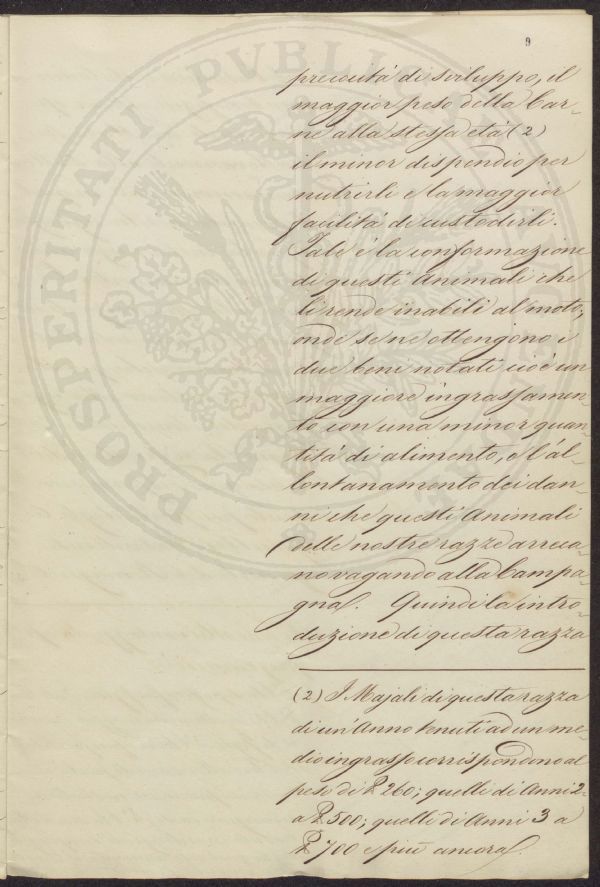 9
precocitá di sviluppo, il
maggior peso della Car-
ne alla stessa etá (2)
il minor dispendio per
nutrirli e la maggior
facilitá di custodirli.
Tale é la conformazione
di questi Animali che
li rende inabili al moto,
onde se ne ottengono i
due beni notati cioé un
maggiore ingrassamen-
to con una minor quan
titá di alimento, e l'al-
lontanamento dei dan-
ni che questi Animali
delle nostre razze arreca-
no vagando alla Campa-
gna. Quindi la intro-
duzione di questa razza
(2) I Majali di questa razza
di un'Anno tenuti ad un me-
dio ingrasso corrispondono al
peso di ℔ 260; quelli di Anni 2
a ℔ 500; quelli di Anni 3 a
℔ 700 e piu ancora.
PROSPERITATI PVBLICAE